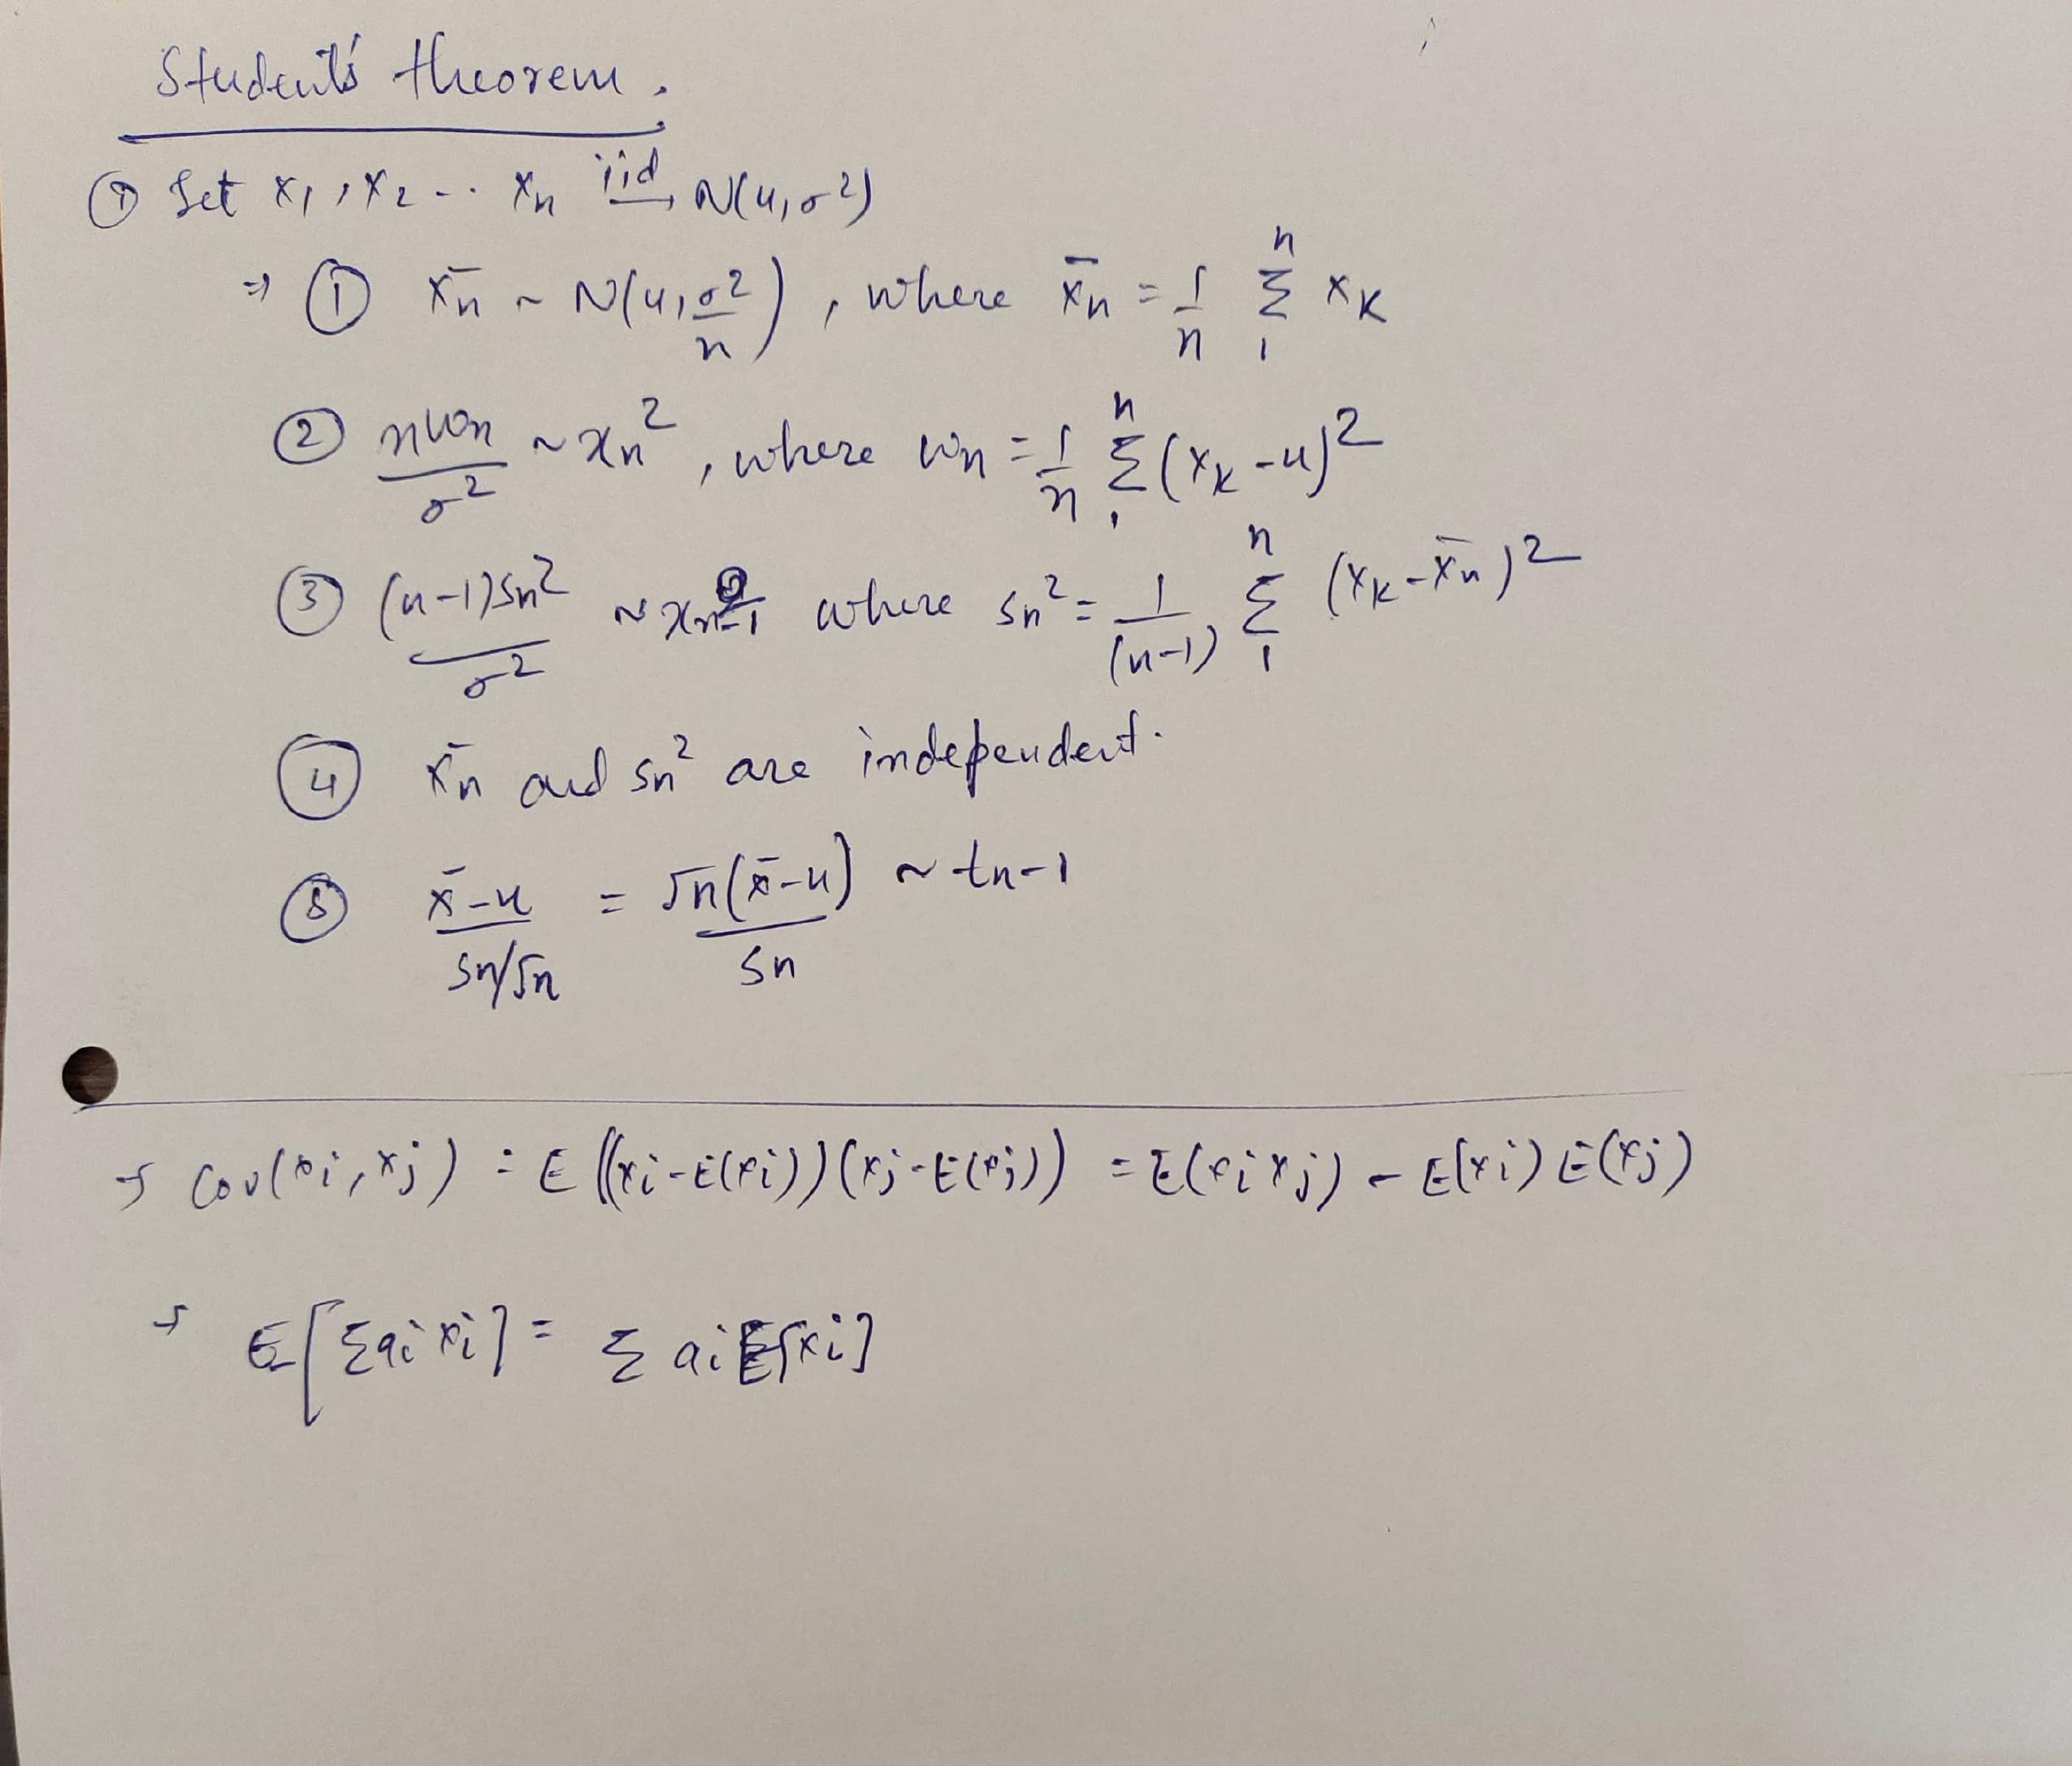 Student's theorem.
① Let x₁, x₂ -.. xₙ iid N(μ, σ²)
⇒ ① x̄ₙ ~ N(μ, σ²/n), where x̄ₙ = 1/n Σ₁ⁿ xₖ
② nwₙ/σ² ~ χₙ², where wₙ = 1/n Σ₁ⁿ (xₖ - μ)²
③ (n-1)sₙ²/σ² ~ χ²ₙ₋₁ where sₙ² = 1/(n-1) Σ₁ⁿ (xₖ - x̄ₙ)²
④ x̄ₙ and sₙ² are independent.
⑤ (x̄ - μ)/(sₙ/√n) = √n(x̄ - μ)/sₙ ~ tₙ₋₁
→ Cov(xᵢ, xⱼ) = E((xᵢ - E(xᵢ))(xⱼ - E(xⱼ)) = E(xᵢxⱼ) - E(xᵢ) E(xⱼ)
→ E[Σaᵢxᵢ] = Σ aᵢE[xᵢ]